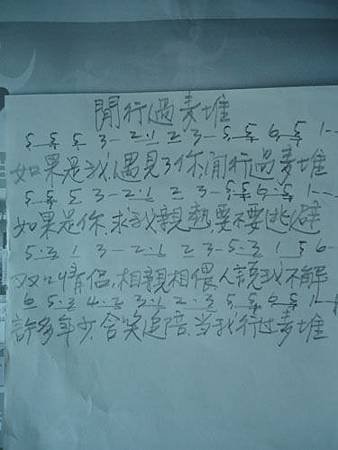 閒行過麦堆
5 5 5 3 - 2·1 2 3 - 5 5 6 5 1 - -
如果是我,遇見了你,閒行過麦堆
5 5 5 3 - 2·1 2 3 - 5 5 6·5 1 - -
如果是你,求我親熱,要不要逃避
5·3 1 3 - 2·1 2 3 - 5·3 1 5 6 -
双双情侶,相親相偎,人說我不解
6 5·3 4·2 3·1 2·3 5 5 6 5 1 -
許多年少,含笑追陪,当我行过麦堆